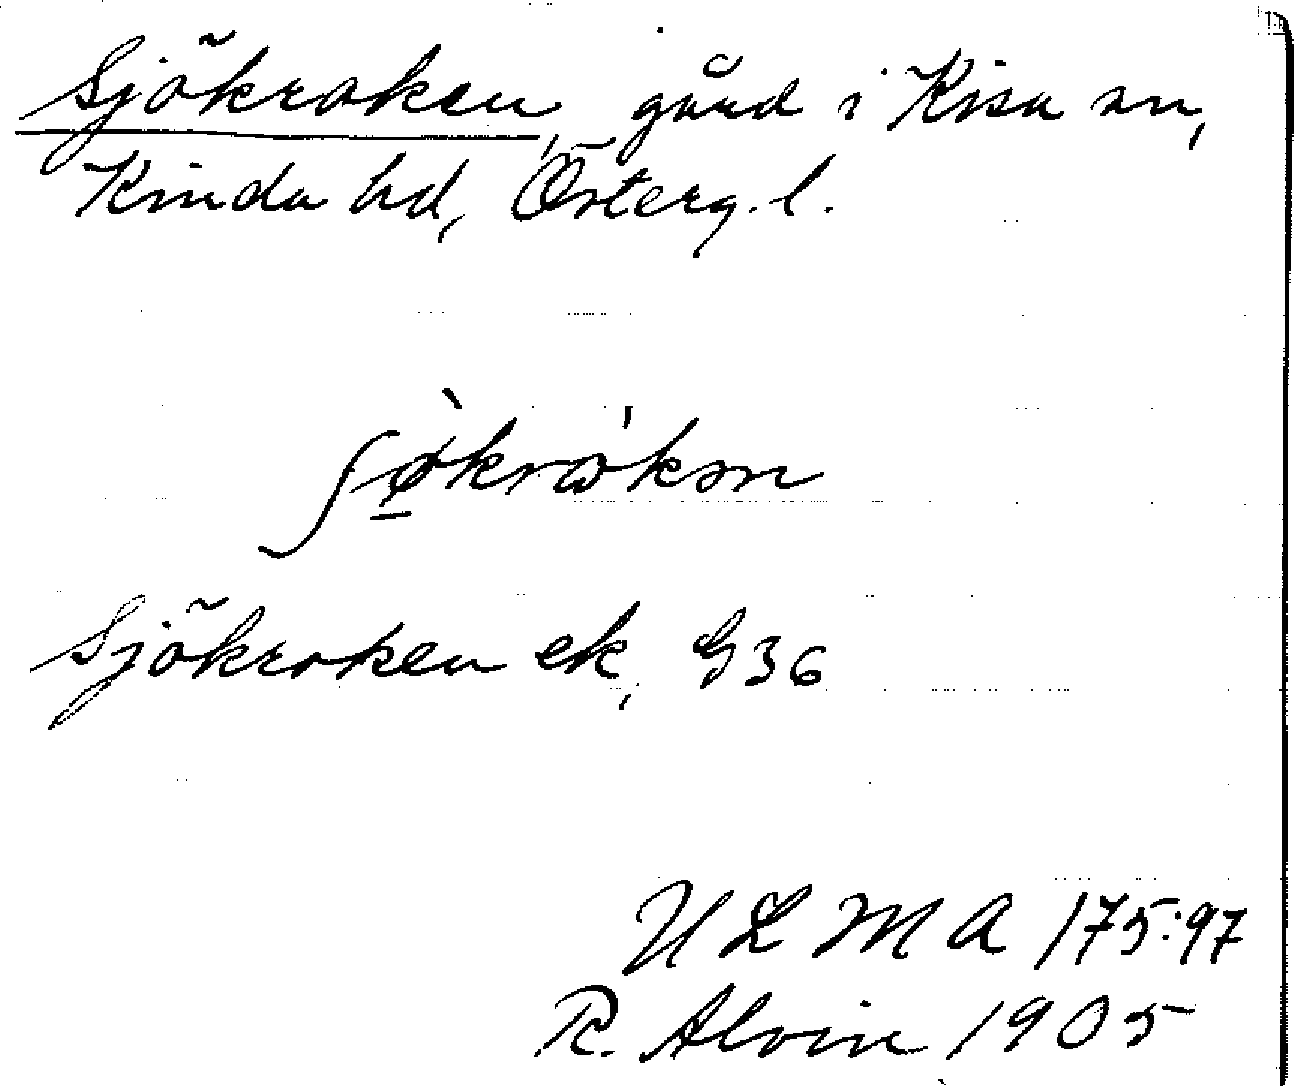 Sjökroken, gård i Kisa sn,
Kinda hd, Österg. l.
Sjökroken ek, G36
ULMA 175:97
R. Alvin 1905